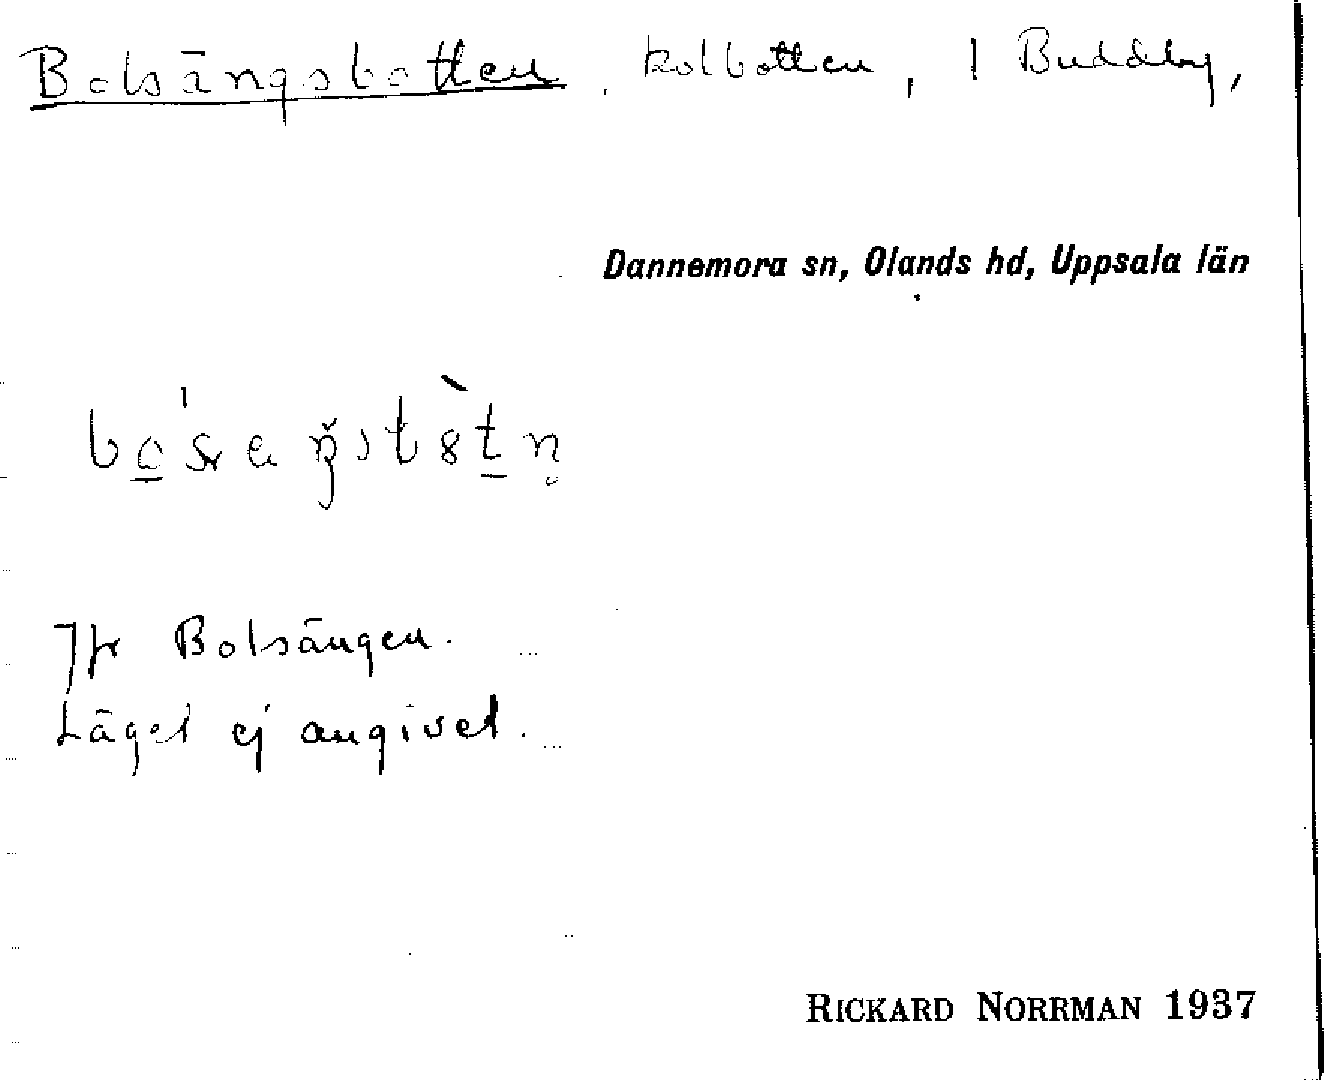 Bolsängsbotten, kolbotten, I Buddby,
Dannemora sn, Olands hd, Uppsala län
Jfr Bolsängen.
Läget ej angivet.
RICKARD NORRMAN 1937